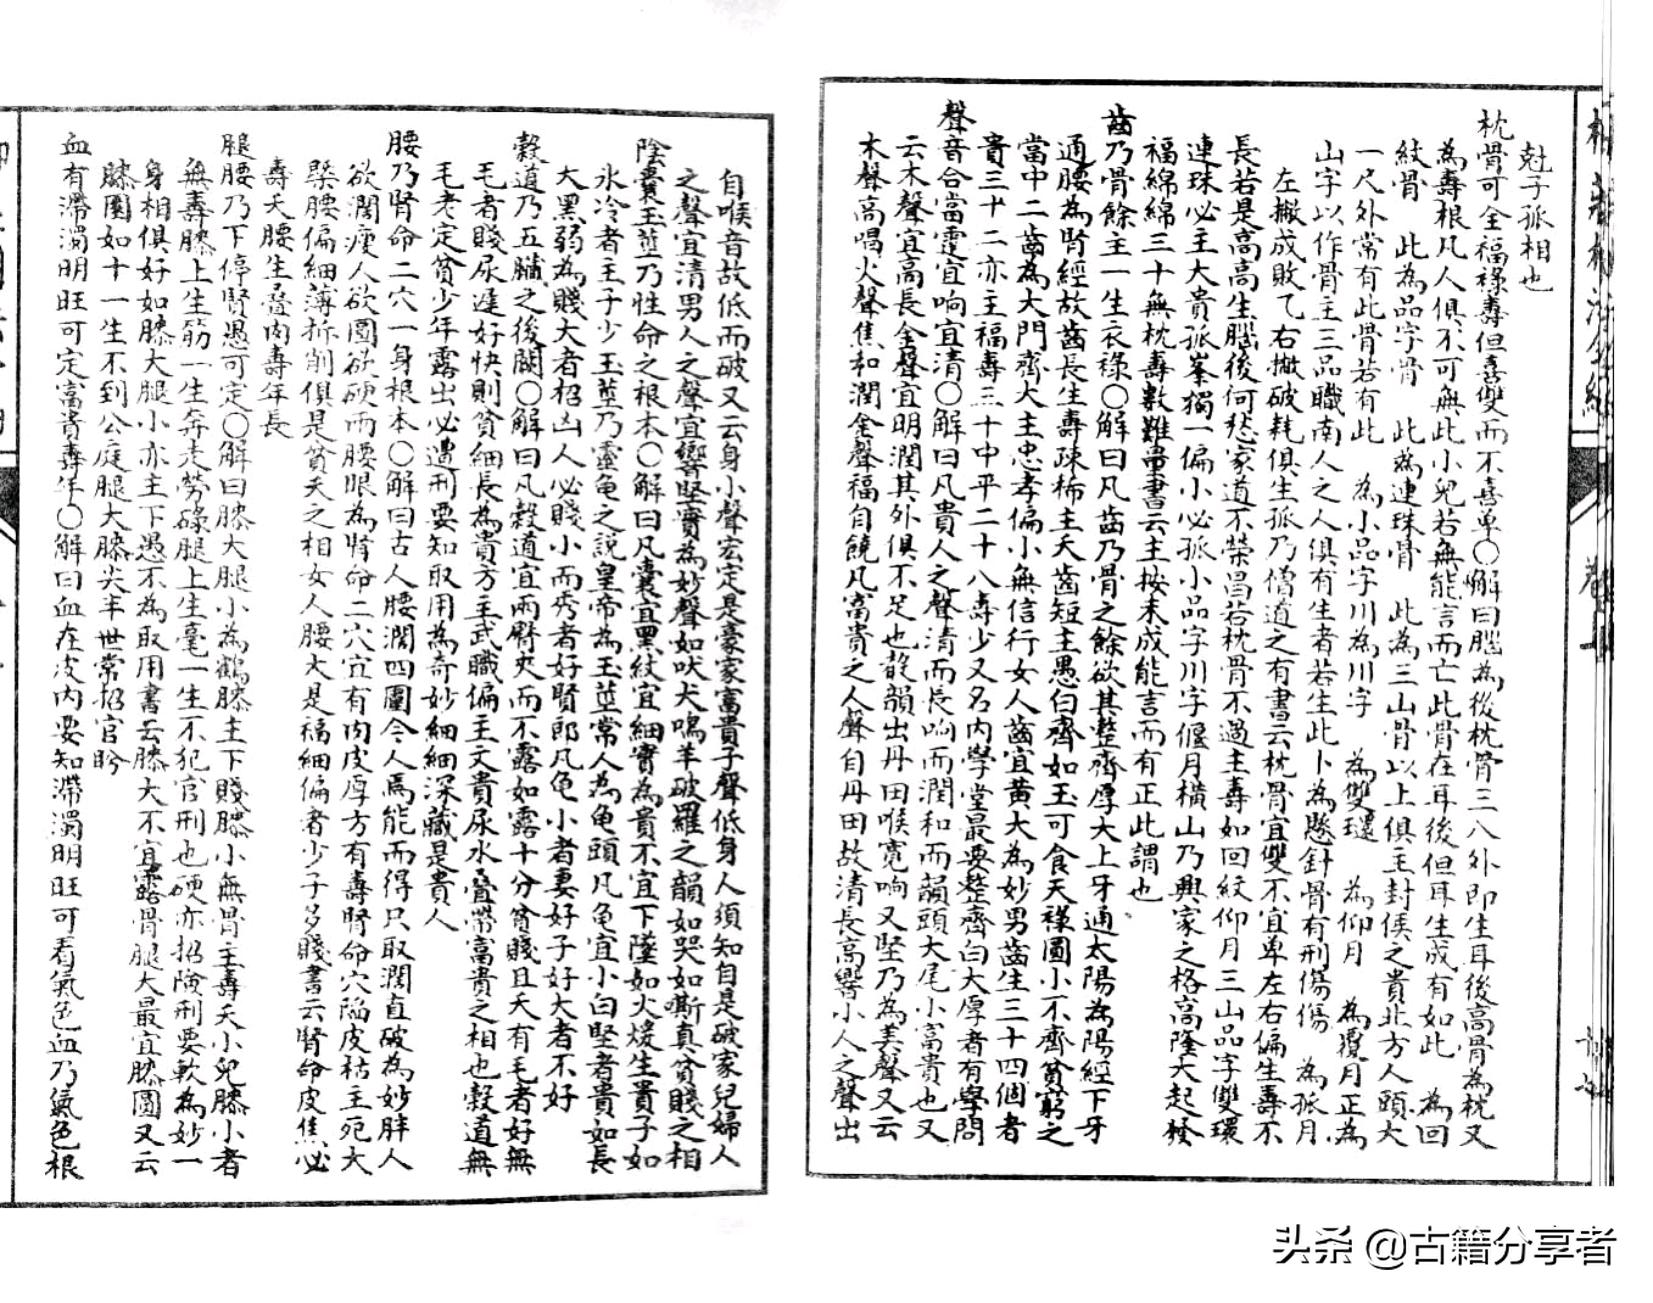 尅子孤相也
枕骨可全福祿壽但喜雙而不喜单○解曰腦為後枕骨三八外即生耳後高骨為枕又
為壽根凡人俱不可無此小兒若無能言而亡此骨在耳後但耳生成有如此　為回
紋骨　此為品字骨　此為連珠骨　此為三山骨以上俱主封侯之貴北方人頭大
一尺外常有此骨若有此　為小品字川為川字　為雙環　為仰月　為覆月正為
山字以作骨主三品職南人之人俱有生者若生此卜為懸針骨有刑傷傷　為孤月
左撇成敗乀右撇破耗俱生孤乃僧道之有書云枕骨宜雙不宜单左右偏生壽不
長若是高高生腦後何愁家道不榮昌若枕骨不過主壽如回紋仰月三山品字雙環
連珠必主大貴孤峯獨一偏小必孤小品字川字偃月橫山乃興家之格高隆大起發
福綿綿三十無枕壽數難量書云主按未成能言而有正此謂也
齒乃骨餘主一生衣祿○解曰凡齒乃骨之餘欲其整齊厚大上牙通太陽為陽經下牙
通腰為腎經故齒長生壽疎稀主夭齒短主愚白齊如玉可食天祿圓小不齊貧窮之
當中二齒為大門齊大主忠孝偏小無信行女人齒宜黃大為妙男齒生三十四個者
貴三十二亦主福壽三十中平二十八壽少又名內學堂最要整齊白大厚者有學問
聲音合當雷宜响宜清○解曰凡貴人之聲清而長响而潤和而韻頭大尾小富貴也又
云木聲宜高長金聲宜明潤其外俱不足也散韻出丹田喉寬响又堅乃為美聲又云
木聲高唱火聲焦和潤金聲福自饒凡富貴之人聲自丹田故清長高響小人之聲出
自喉音故低而破又云身小聲宏定是豪家富貴子聲低身人須知自是破家兒婦人
之聲宜清男人之聲宜響堅實為妙聲如吠犬鳴羊破羅之韻如哭如嘶真貧賤之相
陰囊玉莖乃性命之根本○解曰凡囊宜黑紋宜細實為貴不宜下墜如火煖生貴子如
氷冷者主子少玉莖乃靈龜之說皇帝為玉莖常人為龜頭凡龜宜小白堅者貴如長
大黑弱為賤大者招凶人必賤小而秀者好賢郎凡龜小者妻好子好大者不好
穀道乃五臟之後關○解曰凡穀道宜兩臀夾而不露如露十分貧賤且夭有毛者好無
毛者賤尿遲好快則貧細長為貴方主武職偏主文貴尿水疊帶富貴之相也穀道無
毛老定貧少年露出必遭刑要知取用為奇妙細細深藏是貴人
腰乃腎命二穴一身根本○解曰古人腰濶四圍今人焉能而得只取濶直破為妙胖人
欲濶瘦人欲圓欲硬而腰眼為腎命二穴宜有肉皮厚方有壽腎命穴陷皮枯主死大
槩腰偏細薄折削俱是貧夭之相女人腰大是福細偏者少子多賤書云腎命皮焦必
壽夭腰生疊肉壽年長
腿腰乃下停賢愚可定○解曰膝大腿小為鶴膝主下賤膝小無骨主壽夭小兒膝小者
無壽膝上生筋一生奔走勞碌腿上生毫一生不犯官刑也硬亦招險刑要軟為妙一
身相俱好如膝大腿小亦主下愚不為取用書云膝大不宜露骨腿大最宜膝圓又云
膝圓如十一生不到公庭腿大膝尖半世常招官吟
血有滯濁明旺可定富貴壽年○解曰血在皮內要知滯濁明旺可看氣色血乃氣色根
头条 @古籍分享者